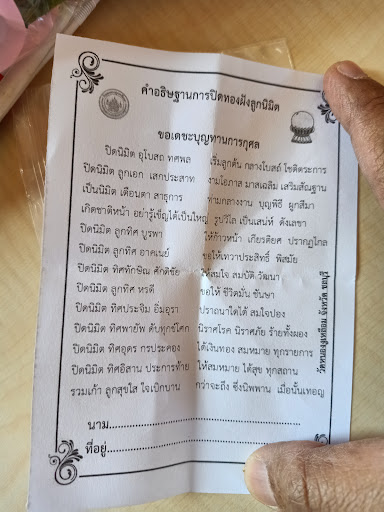 คำอธิษฐานการปิดทองฝังลูกนิมิต
ขอเดชะบุญทานการกุศล
ปิดนิมิต อุโบสถ ทศพล เริ่มลูกต้น กลางโบสถ์ โชติตระการ
ปิดนิมิต ลูกเอก เสกประสาท งามโอภาส มาสเฉลิม เสริมสัณฐาน
เป็นนิมิต เตือนตา สาธุการ ท่ามกลางงาน บุญพิธี ผูกสีมา
เกิดชาติหน้า อย่ารู้เข็ญได้เป็นใหญ่ รูปวิไล เป็นเสน่ห์ ดังเลขา
ปิดนิมิต ลูกทิศ บูรพา ให้ก้าวหน้า เกียรติยศ ปรากฏไกล
ปิดนิมิต ลูกทิศ อาคเนย์ ขอให้เทวาประสิทธิ์ พิสมัย
ปิดนิมิต ทิศทักษิณ ศักดิ์ชัย ให้สมใจ สมบัติ วัฒนา
ปิดนิมิต ลูกทิศ หรดี ขอให้ ชีวีมั่น ชันษา
ปิดนิมิต ทิศประจิม อิ่มอุรา ปรารถนาใดได้ สมใจปอง
ปิดนิมิต ทิศพายัพ ดับทุกข์โศก นิราศโรค นิราศภัย ร้ายทั้งผอง
ปิดนิมิต ทิศอุดร กรประคอง ได้เงินทอง สมหมาย ทุกรายการ
ปิดนิมิต ทิศอิสาน ประการท้าย ให้สมหมาย ได้สุข ทุกสถาน
รวมเก้า ลูกสุกใส ใจเบิกบาน กว่าจะถึง ซึ่งนิพพาน เมื่อนั้นเทอญ
นาม
ที่อยู่